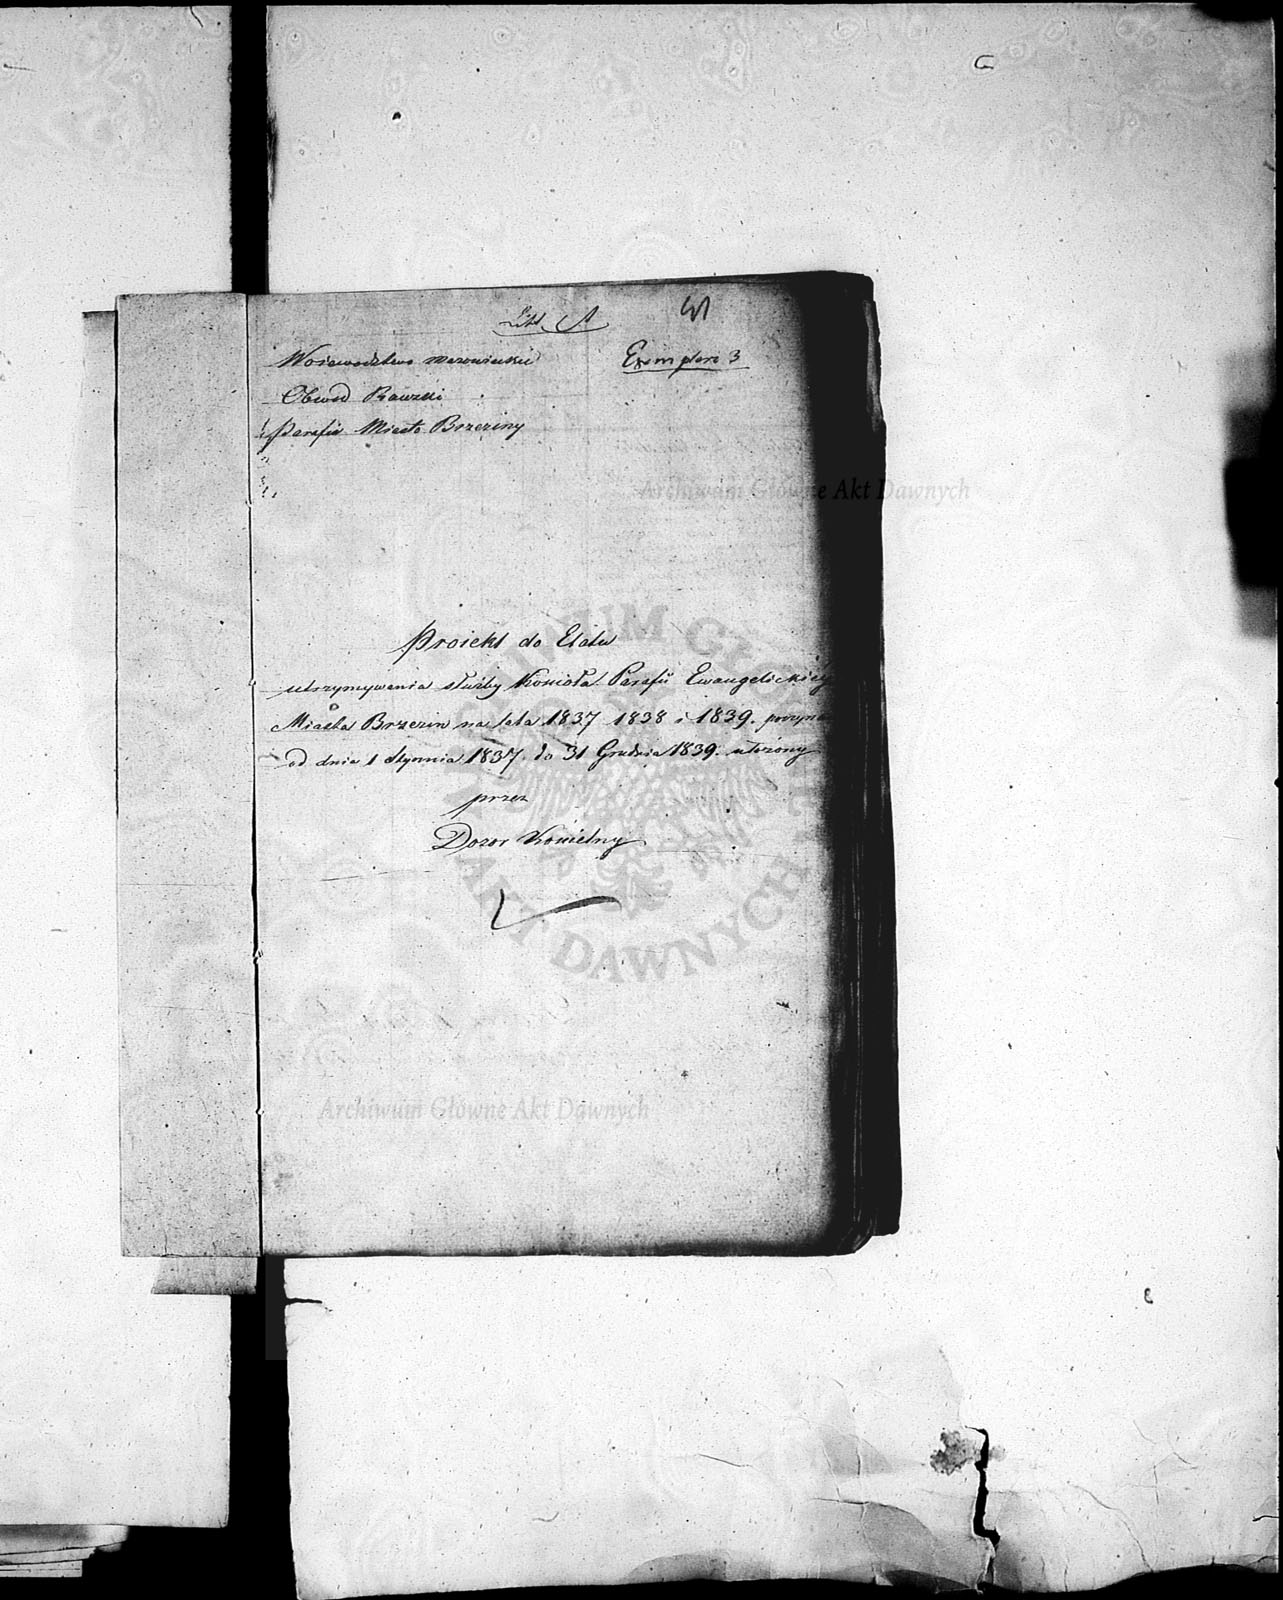 Litt. A
Woiewodztwo Mazowieckie
Exemplarz 3
Obwód Rawski
Parafia Miasto Brzeziny
Archiwum Główne Akt Dawnych
Proiekt do Etatu
utrzymywania służby Kościoła Parafii Ewangelickiey
Miasta Brzezin na lata 1837 1838 i 1839.
od dnia 1 Stycznia 1837. do 31 Grudnia 1839. ułożony
przez
Dozor Kościelny
AKT DAWNYCH
Archiwum Główne Akt Dawnych